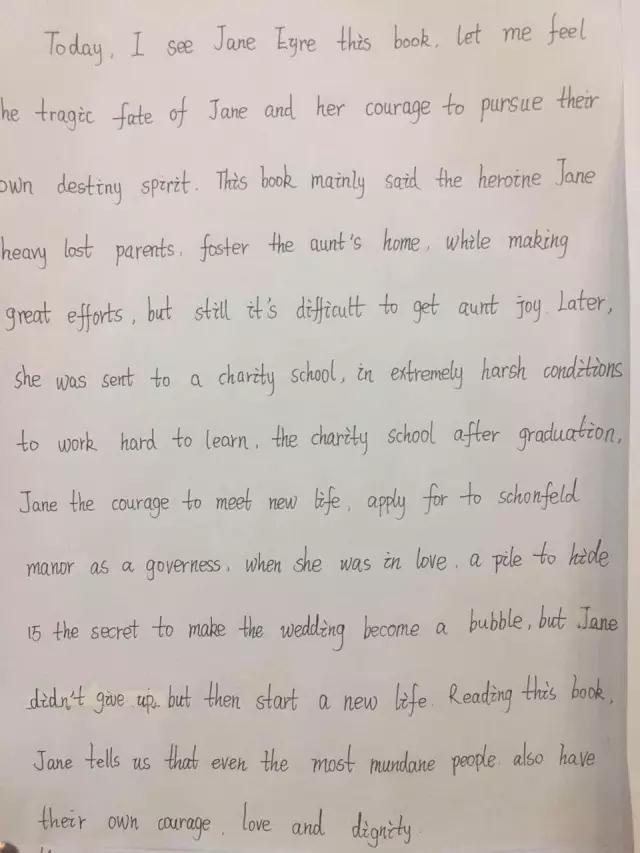 Today, I see Jane Eyre this book, let me feel
he tragic fate of Jane and her courage to pursue their
own destiny spirit. This book mainly said the heroine Jane
heavy lost parents, foster the aunt's home, while making
great efforts, but still it's difficult to get aunt joy. Later,
she was sent to a charity school, in extremely harsh conditions
to work hard to learn, the charity school after graduation,
Jane the courage to meet new life, apply for to schonfeld
manor as a governess, when she was in love, a pile to hide
15 the secret to make the wedding become a bubble, but Jane
didn't give up, but then start a new life. Reading this book,
Jane tells us that even the most mundane people also have
their own courage, love and dignity.